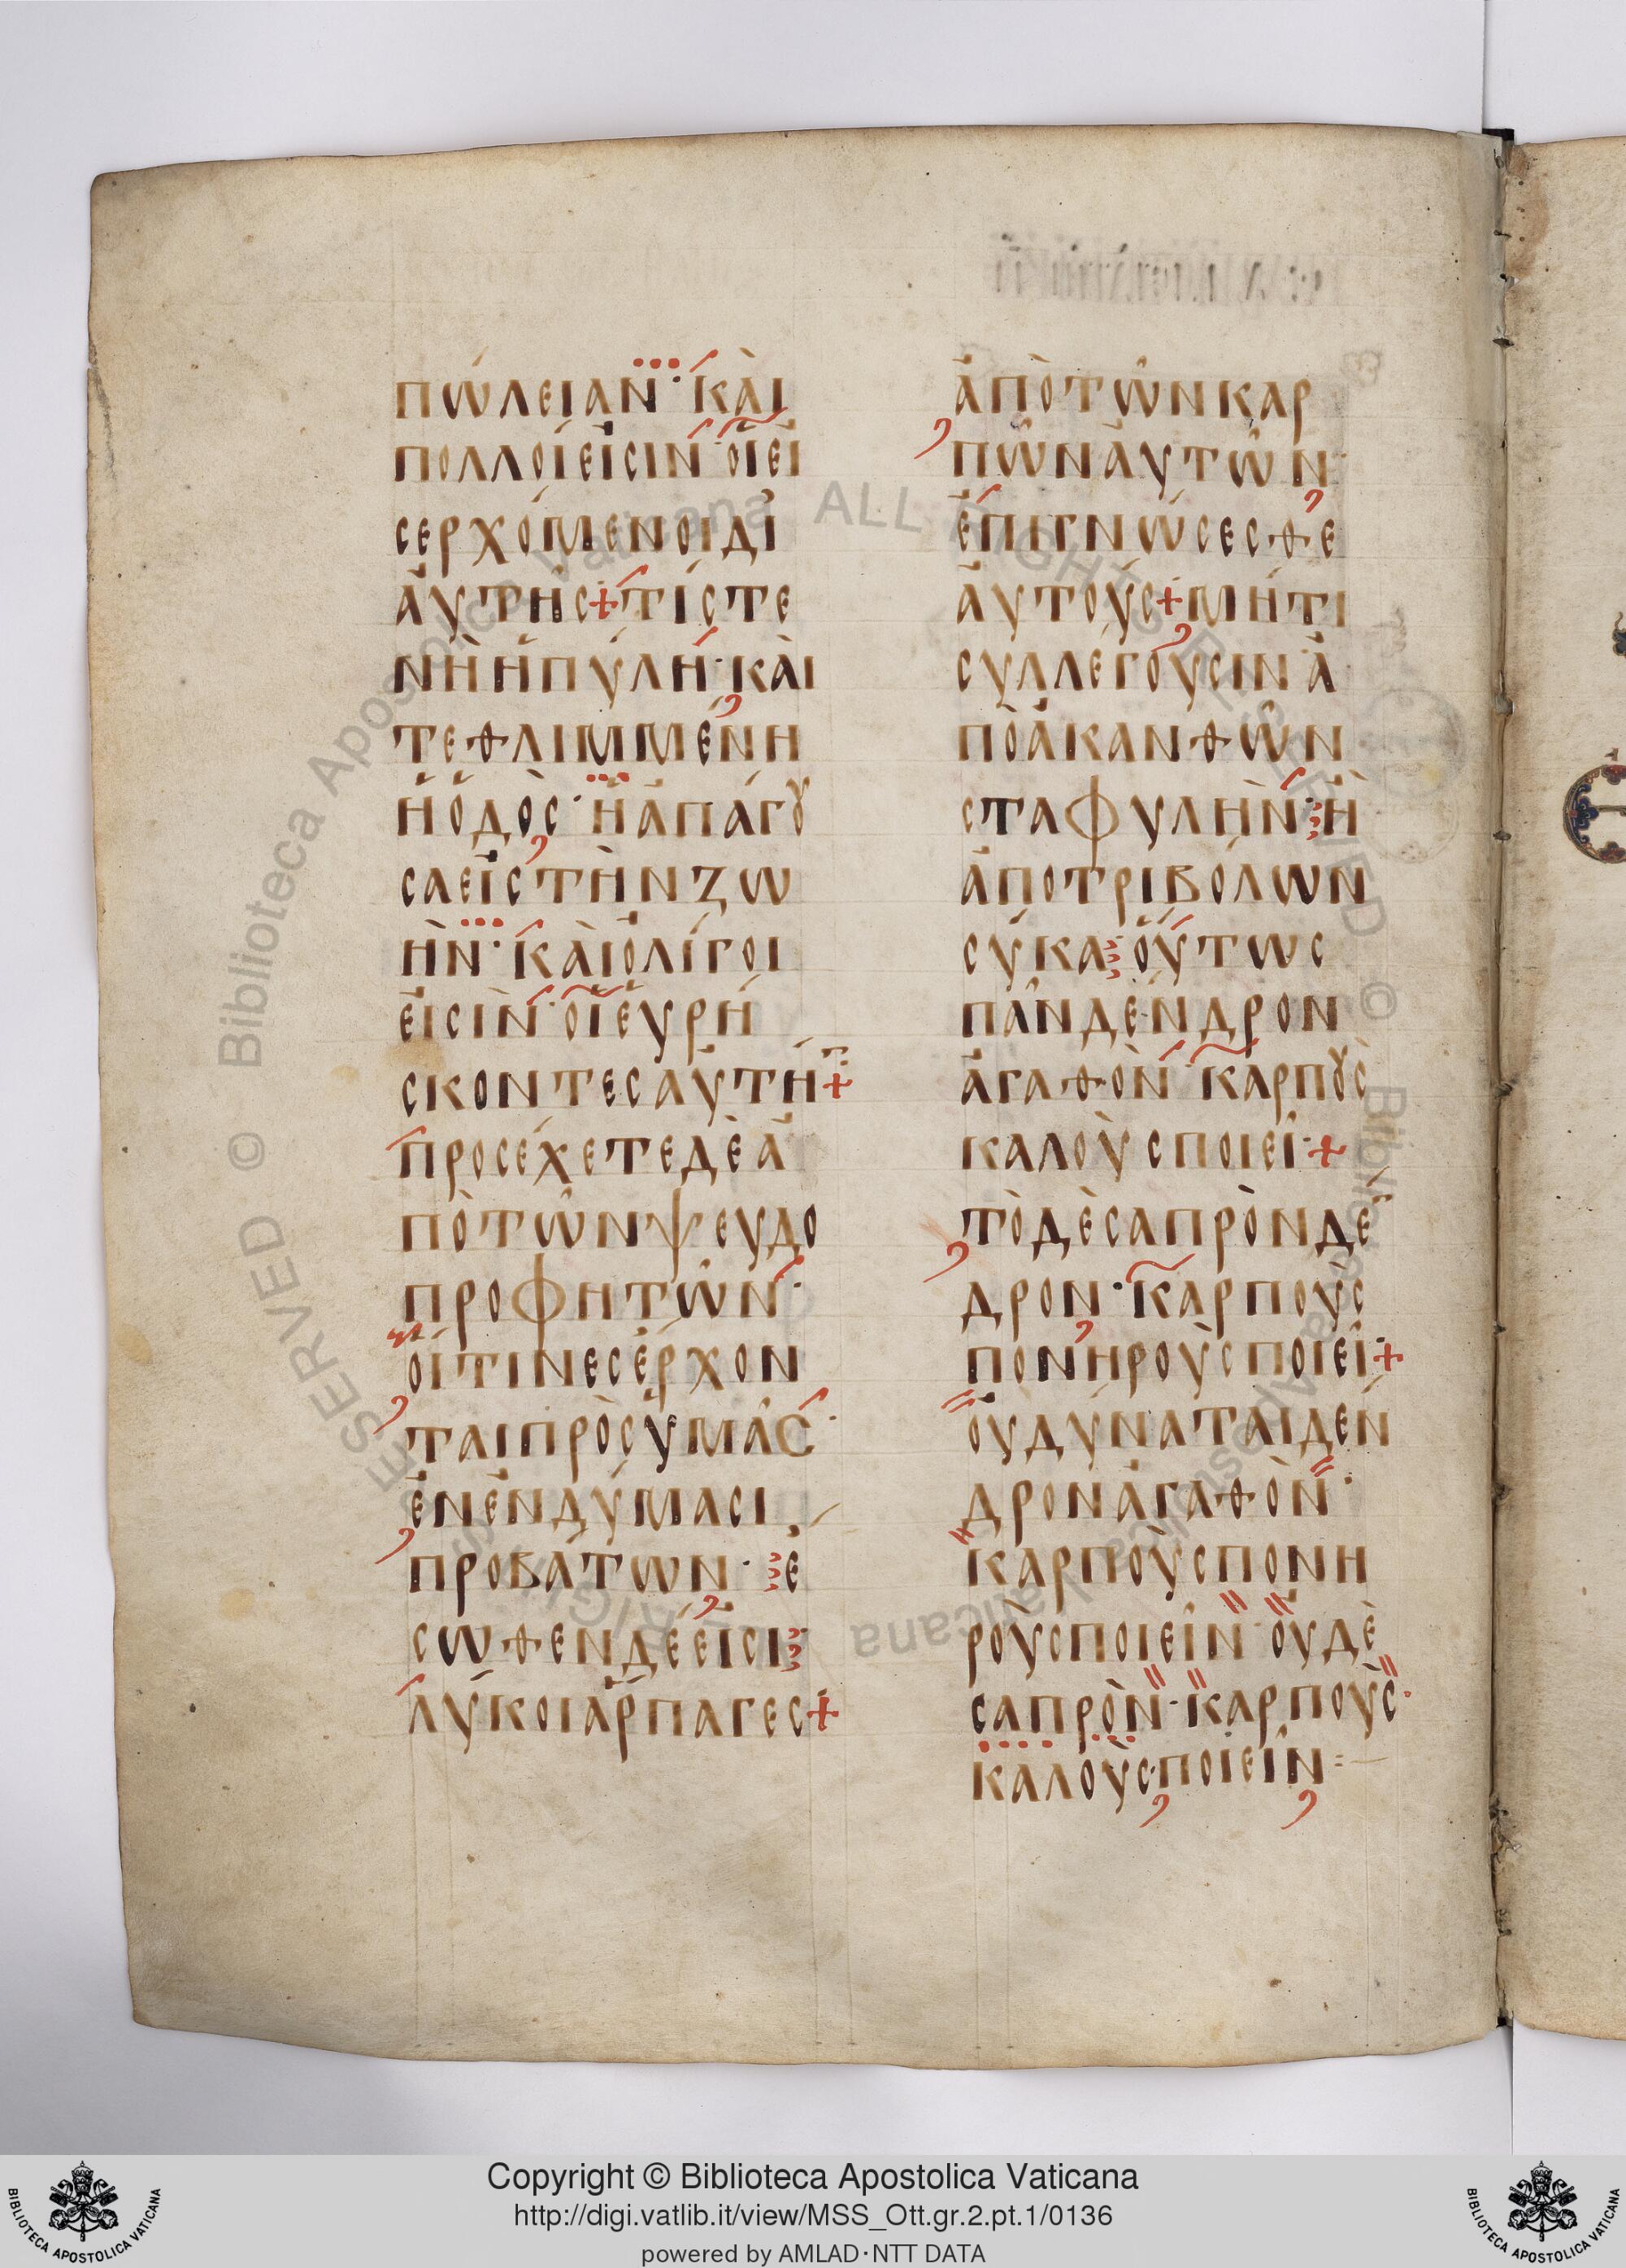 πώλειαν· κὰι
πολλοί εἰσιν· οἱ εἰ
σερχόμενοι δἰ
ἀυτῆς + τί στε
νὴ ἡ πύλη· κὰι
τεθλιμμένη
ἡ ὁδὸς· ἡ ἀπάγου
σα εἰς τὴν ζω
ὴν· κὰι ὀλίγοι
ἐισὶν· οἱ ἑυρή
σκοντες ἀυτή +
προσέχετε δὲ ἀ
πὸ τῶν ψευδο
προφητῶν·
οἵτινες ἔρχον
ται πρὸς ὑμᾶς·
ἐν ἐνδύμασι
προβάτων· ἔ
σωθεν δέ ἐισι
λύκοι ἅρπαγες +
ἀπὸ τῶν καρ
πῶν ἀυτῶν·
ἐπιγνώσεσθε
ἀυτούς + μήτι
συλλέγουσιν ἀ
πὸ ἀκανθῶν
σταφυλὴν· ἢ
ἀπο τριβόλων
σύκα· ὅυτως
πᾶν δένδρον
ἀγαθὸν· καρποὺς
καλοὺς ποιεῖ· +
τὸ δὲ σαπρὸν δέ
δρον· καρποὺς
πονηροὺς ποιεῖ +
ὀυ δύναται δέν
δρον ἀγαθὸν·
καρποὺς πονη
ροὺς ποιεῖν· ὀυδὲ
σαπρὸν· καρποὺς·
καλοὺς ποιεῖν =
Copyright © Biblioteca Apostolica Vaticana
http://digi.vatlib.it/view/MSS_Ott.gr.2.pt.1/0136
powered by AMLAD·NTT DATA
BIBLIOTECA APOSTOLICA VATICANA
BIBLIOTECA APOSTOLICA VATICANA